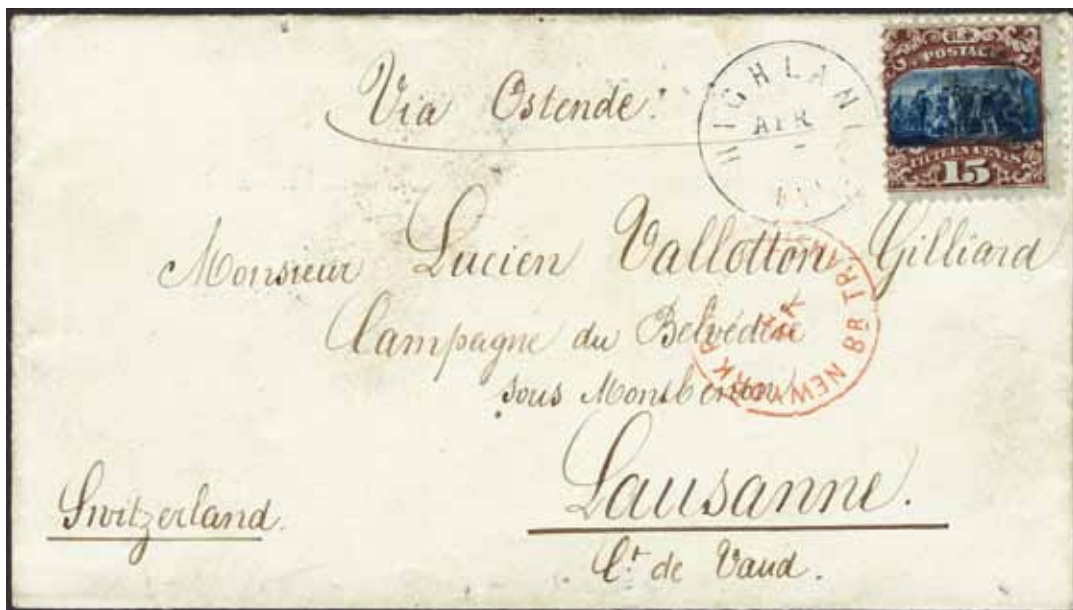 Via Ostende.
HIGHLAN
APR
POSTAGE
FIFTEEN CENTS
15
Monsieur Lucien Vallotton Gilliard
Campagne du Belvédère
sous Montbenon
NEW YORK BR TRA
Lausanne.
Switzerland.
Ct de Vaud.